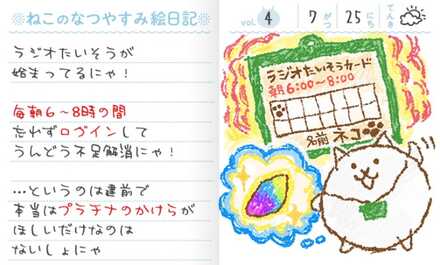 ねこのなつやすみ絵日記
vol. 4 7がつ 25にち てんき
ラジオたいそうが
始まってるにゃ！
毎朝6～8時の間
忘れずログインして
うんどう不足解消にゃ！
…というのは建前で
本当はプラチナのかけらが
ほしいだけなのは
ないしょにゃ
ラジオたいそうカード
朝6:00～8:00
名前 ネコ